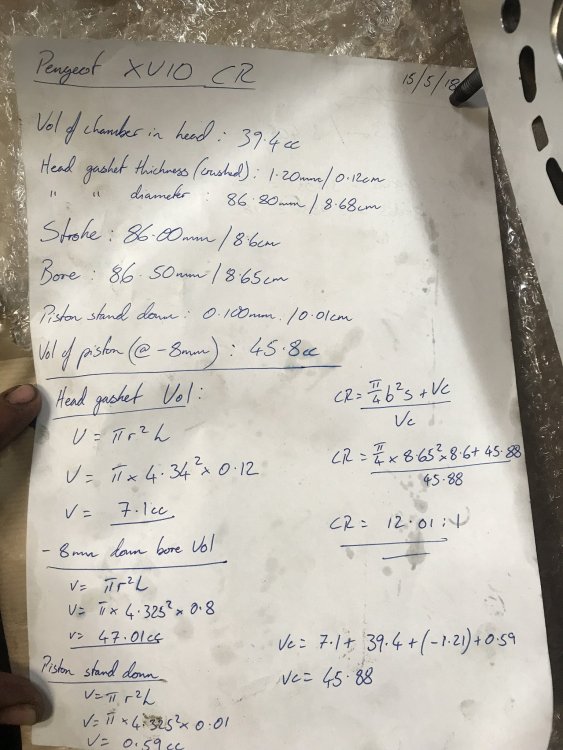 Peugeot XU10 CR
15/5/18
Vol of chamber in head : 39.4cc
Head gasket thickness (crushed) : 1.20mm / 0.12cm
" " diameter : 86.80mm / 8.68cm
Stroke : 86.00mm / 8.6cm
Bore : 86.50mm / 8.65cm
Piston stand down : 0.100mm / 0.01cm
Vol of piston (@ -8mm) : 45.8cc
Head gasket Vol :
V = πr²h
V = π x 4.34² x 0.12
V = 7.1cc
- 8mm down bore Vol
V = πr²h
V = π x 4.325² x 0.8
V = 47.01cc
Piston stand down
V = πr²h
V = π x 4.325² x 0.01
V = 0.59cc
CR = π/4 b²s + Vc
Vc
CR = π/4 x 8.65² x 8.6 + 45.88
45.88
CR = 12.01 : 1
Vc = 7.1 + 39.4 + (-1.21) + 0.59
Vc = 45.88